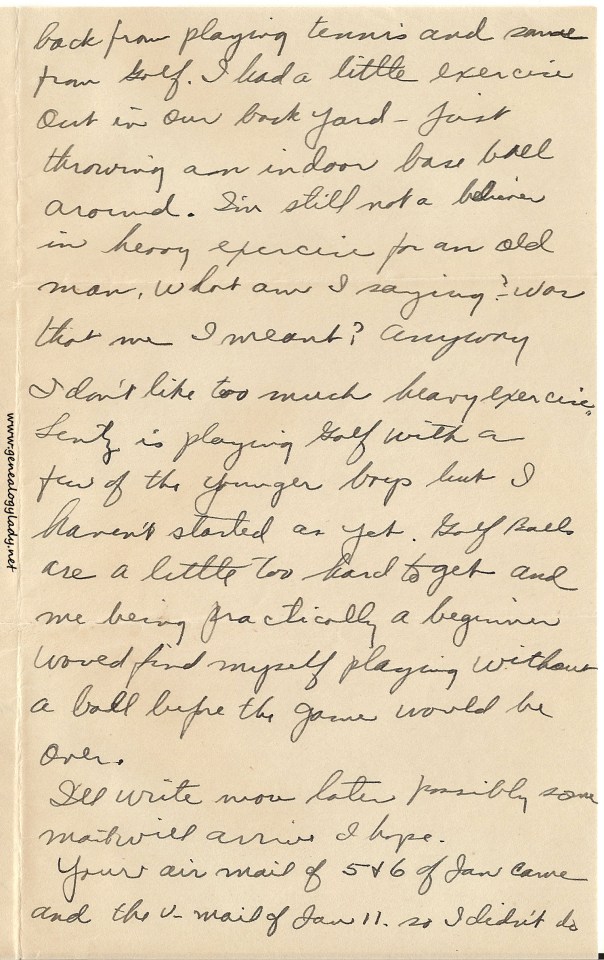 back from playing tennis and some
from Golf. I had a little exercise
out in our back yard – just
throwing an indoor base ball
around. I'm still not a believer
in heavy exercise for an old
man, What am I saying? – was
that me I meant? Anyway
I don't like too much heavy exercise.
Lentz is playing Golf with a
few of the younger boys but I
haven't started as yet. Golf Balls
are a little too hard to get and
me being practically a beginner
would find myself playing without
a ball before the game would be
over.
I'll write more later possibly some
mail will arrive I hope.
Your air mail of 5 & 6 of Jan came
and the V-mail of Jan 11. so I didn't do
www.genealogylady.net